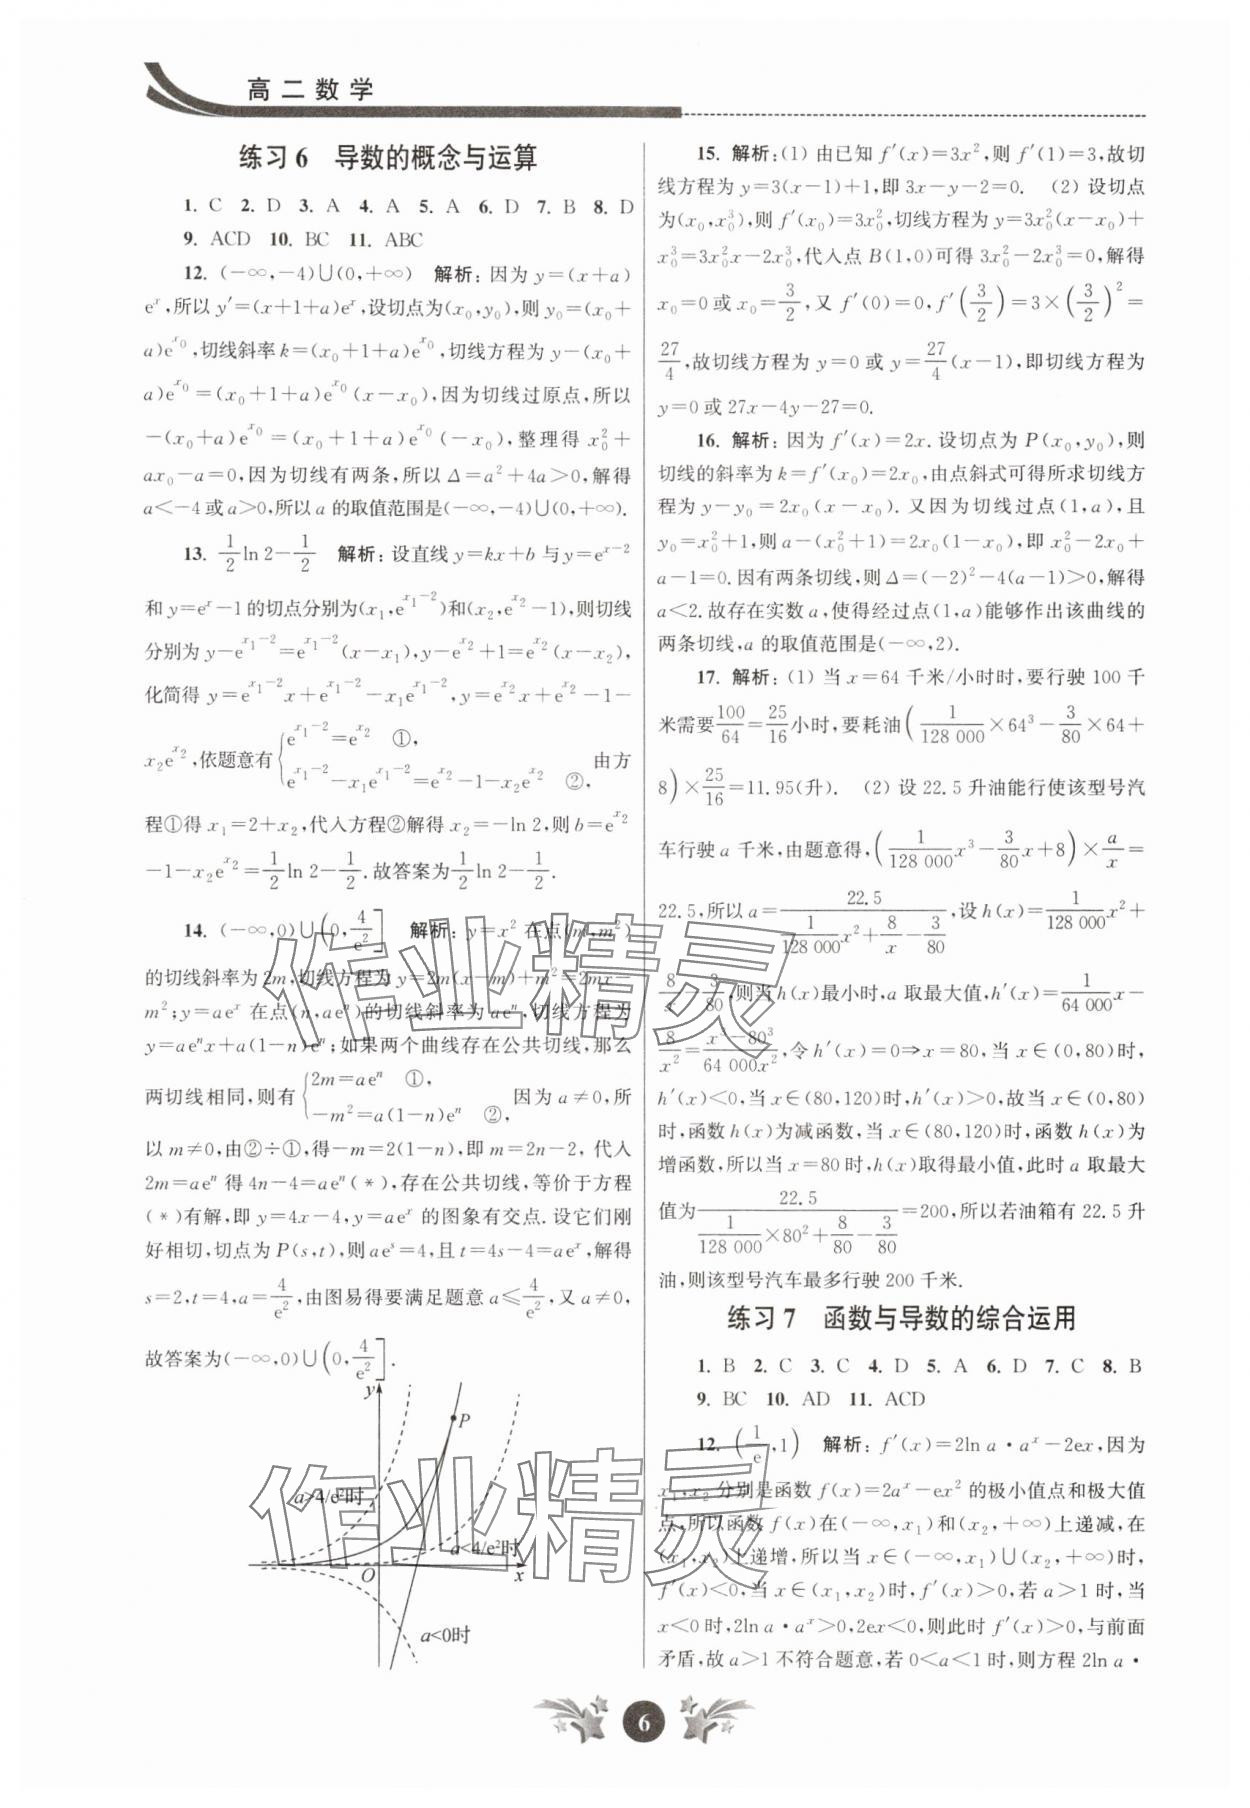 高二数学
练习6 导数的概念与运算
1. C 2. D 3. A 4. A 5. A 6. D 7. B 8. D
9. ACD 10. BC 11. ABC
12. (−∞,−4)∪(0,+∞) 解析:因为 y=(x+a)
eˣ,所以 y′=(x+1+a)eˣ,设切点为(x₀,y₀),则 y₀=(x₀+
a)e^{x₀},切线斜率 k=(x₀+1+a)e^{x₀},切线方程为 y−(x₀+
a)e^{x₀}=(x₀+1+a)e^{x₀}(x−x₀),因为切线过原点,所以
−(x₀+a)e^{x₀}=(x₀+1+a)e^{x₀}(−x₀),整理得 x₀²+
ax₀−a=0,因为切线有两条,所以 Δ=a²+4a>0,解得
a<−4或a>0,所以 a 的取值范围是(−∞,−4)∪(0,+∞).
13. 1/2 ln 2−1/2 解析:设直线 y=kx+b 与 y=e^{x−2}
和 y=eˣ−1的切点分别为(x₁,e^{x₁−2})和(x₂,e^{x₂}−1),则切线
分别为 y−e^{x₁−2}=e^{x₁−2}(x−x₁),y−e^{x₂}+1=e^{x₂}(x−x₂),
化简得 y=e^{x₁−2}x+e^{x₁−2}−x₁e^{x₁−2},y=e^{x₂}x+e^{x₂}−1−
x₂e^{x₂},依题意有{e^{x₁−2}=e^{x₂} ①, e^{x₁−2}−x₁e^{x₁−2}=e^{x₂}−1−x₂e^{x₂} ②, 由方
程①得 x₁=2+x₂,代入方程②解得 x₂=−ln 2,则 b=e^{x₂}
−1−x₂e^{x₂}=1/2 ln 2−1/2.故答案为1/2 ln 2−1/2.
14. (−∞,0)∪(0,4/e²] 解析:y=x² 在点(m,m²)
的切线斜率为 2m,切线方程为 y=2m(x−m)+m²=2mx−
m²;y=aeˣ 在点(n,aeⁿ)的切线斜率为 aeⁿ,切线方程为
y=aeⁿx+a(1−n)eⁿ;如果两个曲线存在公共切线,那么
两切线相同,则有{2m=aeⁿ ①, −m²=a(1−n)eⁿ ②, 因为 a≠0,所
以 m≠0,由②÷①,得−m=2(1−n),即 m=2n−2,代入
2m=aeⁿ 得 4n−4=aeⁿ(*),存在公共切线,等价于方程
(*)有解,即 y=4x−4,y=aeˣ 的图象有交点.设它们刚
好相切,切点为 P(s,t),则 aeˢ=4,且 t=4s−4=aeˣ,解得
s=2,t=4,a=4/e²,由图易得要满足题意 a≤4/e²,又 a≠0,
故答案为(−∞,0)∪(0,4/e²].
y
P
a>4/e²时
a<4/e²时
O
x
a<0时
15. 解析:(1) 由已知 f′(x)=3x²,则 f′(1)=3,故切
线方程为 y=3(x−1)+1,即 3x−y−2=0. (2) 设切点
为(x₀,x₀³),则 f′(x₀)=3x₀²,切线方程为 y=3x₀²(x−x₀)+
x₀³=3x₀²x−2x₀³,代入点 B(1,0)可得 3x₀²−2x₀³=0,解得
x₀=0 或 x₀=3/2,又 f′(0)=0,f′(3/2)=3×(3/2)²=
27/4,故切线方程为 y=0 或 y=27/4(x−1),即切线方程为
y=0 或 27x−4y−27=0.
16. 解析:因为 f′(x)=2x.设切点为 P(x₀,y₀),则
切线的斜率为 k=f′(x₀)=2x₀,由点斜式可得所求切线方
程为 y−y₀=2x₀(x−x₀).又因为切线过点(1,a),且
y₀=x₀²+1,则 a−(x₀²+1)=2x₀(1−x₀),即 x₀²−2x₀+
a−1=0.因有两条切线,则 Δ=(−2)²−4(a−1)>0,解得
a<2.故存在实数 a,使得经过点(1,a)能够作出该曲线的
两条切线,a 的取值范围是(−∞,2).
17. 解析:(1) 当 x=64 千米/小时时,要行驶 100 千
米需要100/64=25/16小时,要耗油(1/128 000×64³−3/80×64+
8)×25/16=11.95(升). (2) 设 22.5 升油能行使该型号汽
车行驶 a 千米,由题意得,(1/128 000 x³−3/80 x+8)×a/x=
22.5,所以 a=22.5/(1/128 000 x²+8/x−3/80),设 h(x)=1/128 000 x²+
8/x−3/80,则当 h(x)最小时,a 取最大值,h′(x)=1/64 000 x−
8/x²=(x³−80³)/(64 000x²),令 h′(x)=0⇒x=80,当 x∈(0,80)时,
h′(x)<0,当 x∈(80,120)时,h′(x)>0,故当 x∈(0,80)
时,函数 h(x)为减函数,当 x∈(80,120)时,函数 h(x)为
增函数,所以当 x=80 时,h(x)取得最小值,此时 a 取最大
值为22.5/(1/128 000×80²+8/80−3/80)=200,所以若油箱有 22.5 升
油,则该型号汽车最多行驶 200 千米.
练习7 函数与导数的综合运用
1. B 2. C 3. C 4. D 5. A 6. D 7. C 8. B
9. BC 10. AD 11. ACD
12. (1/e,1) 解析:f′(x)=2ln a·aˣ−2ex,因为
x₁,x₂ 分别是函数 f(x)=2aˣ−ex² 的极小值点和极大值
点,所以函数 f(x)在(−∞,x₁)和(x₂,+∞)上递减,在
(x₁,x₂)上递增,所以当 x∈(−∞,x₁)∪(x₂,+∞)时,
f′(x)<0,当 x∈(x₁,x₂)时,f′(x)>0,若 a>1 时,当
x<0 时,2ln a·aˣ>0,2ex<0,则此时 f′(x)>0,与前面
矛盾,故 a>1 不符合题意,若 0<a<1 时,则方程 2ln a·
作业精灵
作业精灵
6